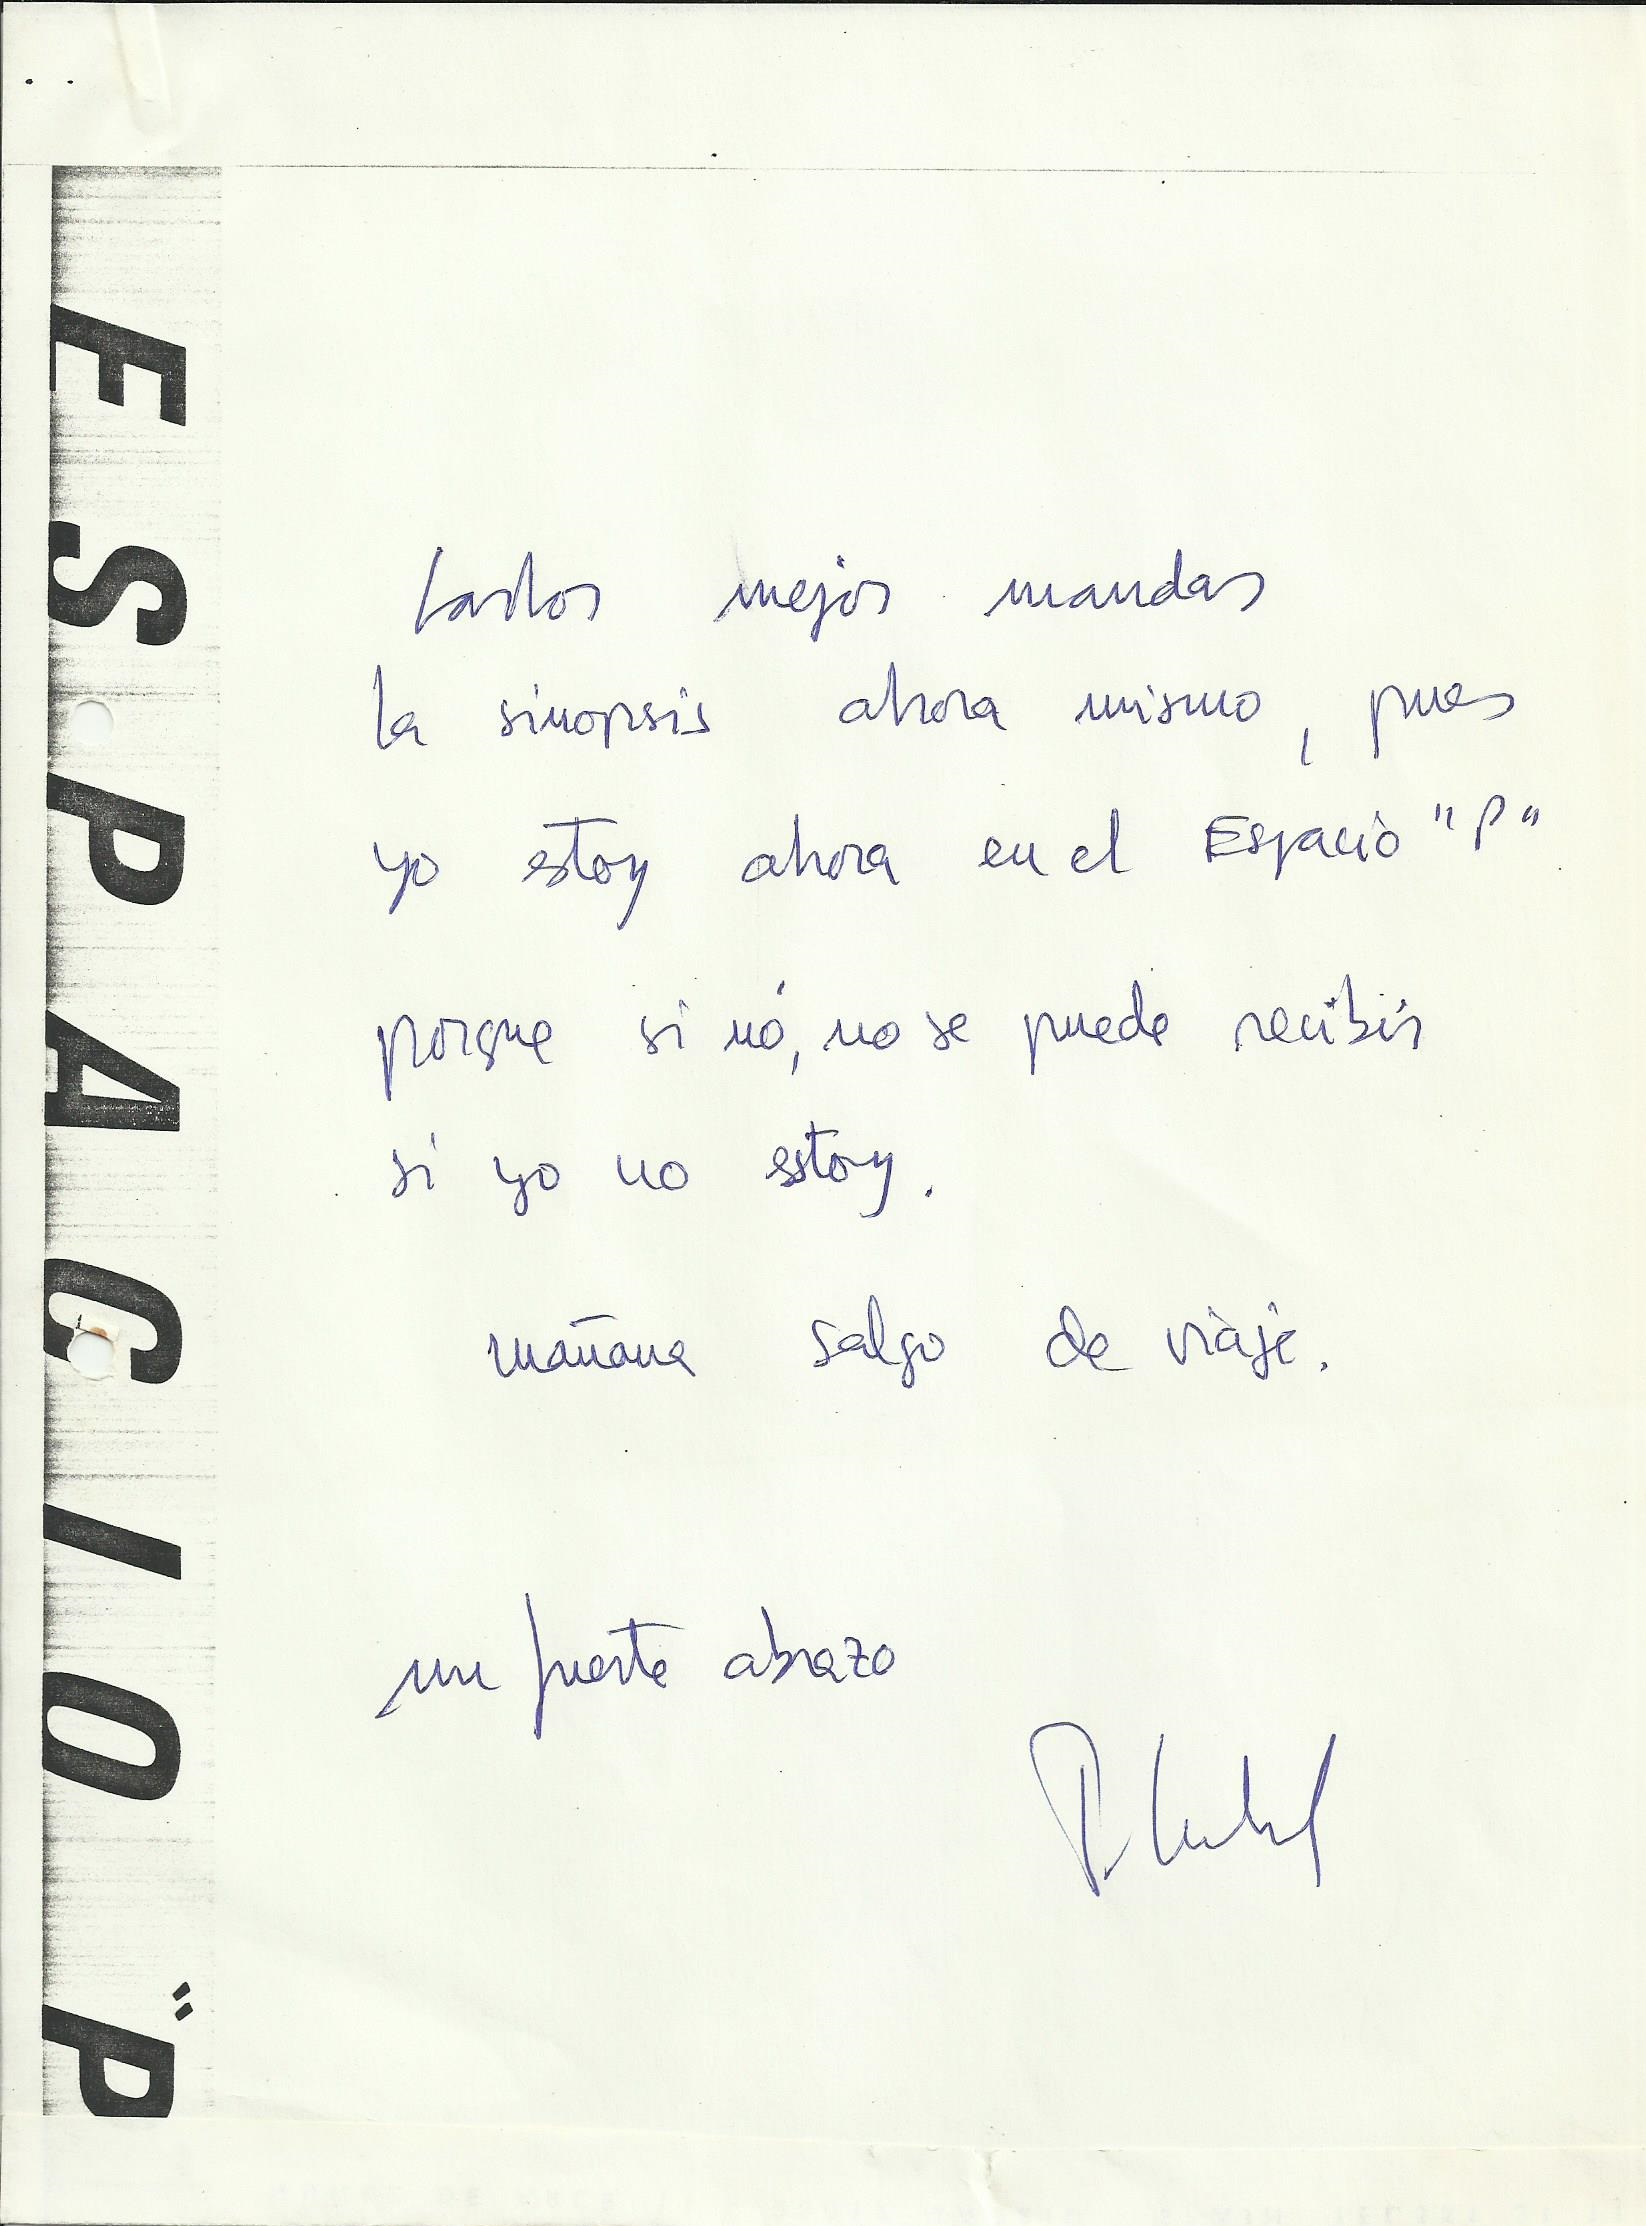 ESPACIO "P
Carlos mejor mandas
la sinopsis ahora mismo, pues
yo estoy ahora en el Espacio "P"
porque si nó, no se puede recibir
si yo no estoy.
mañana salgo de viaje.
un fuerte abrazo